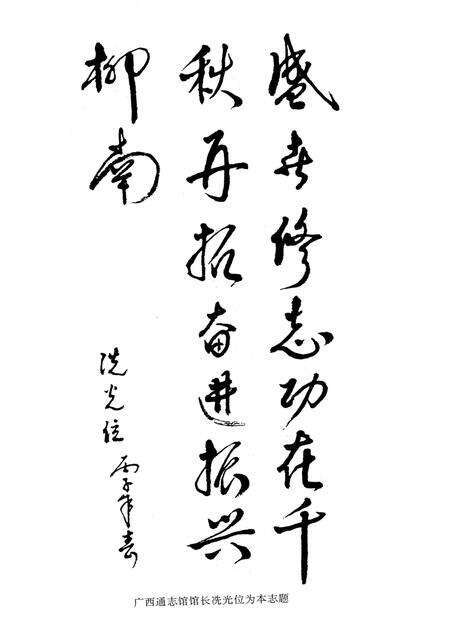 盛世修志功在千
秋再拓奋进振兴
柳南
冼光位 丙子年春
广西通志馆馆长冼光位为本志题